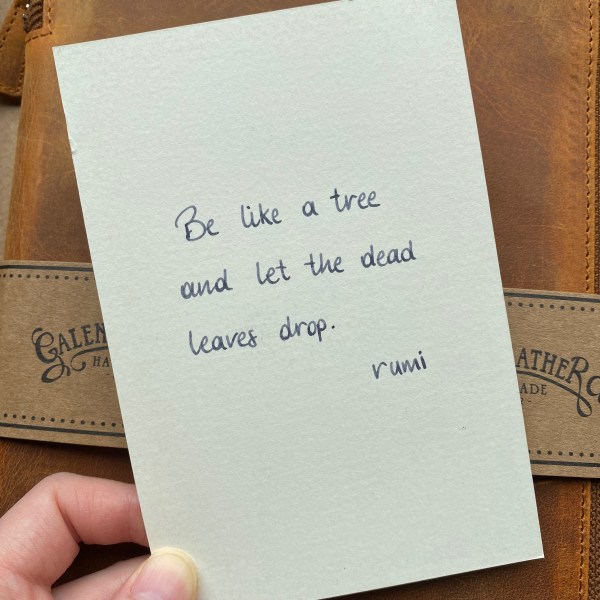 Be like a tree
and let the dead
leaves drop.
rumi
GALEN
HA
ATHER
ADE